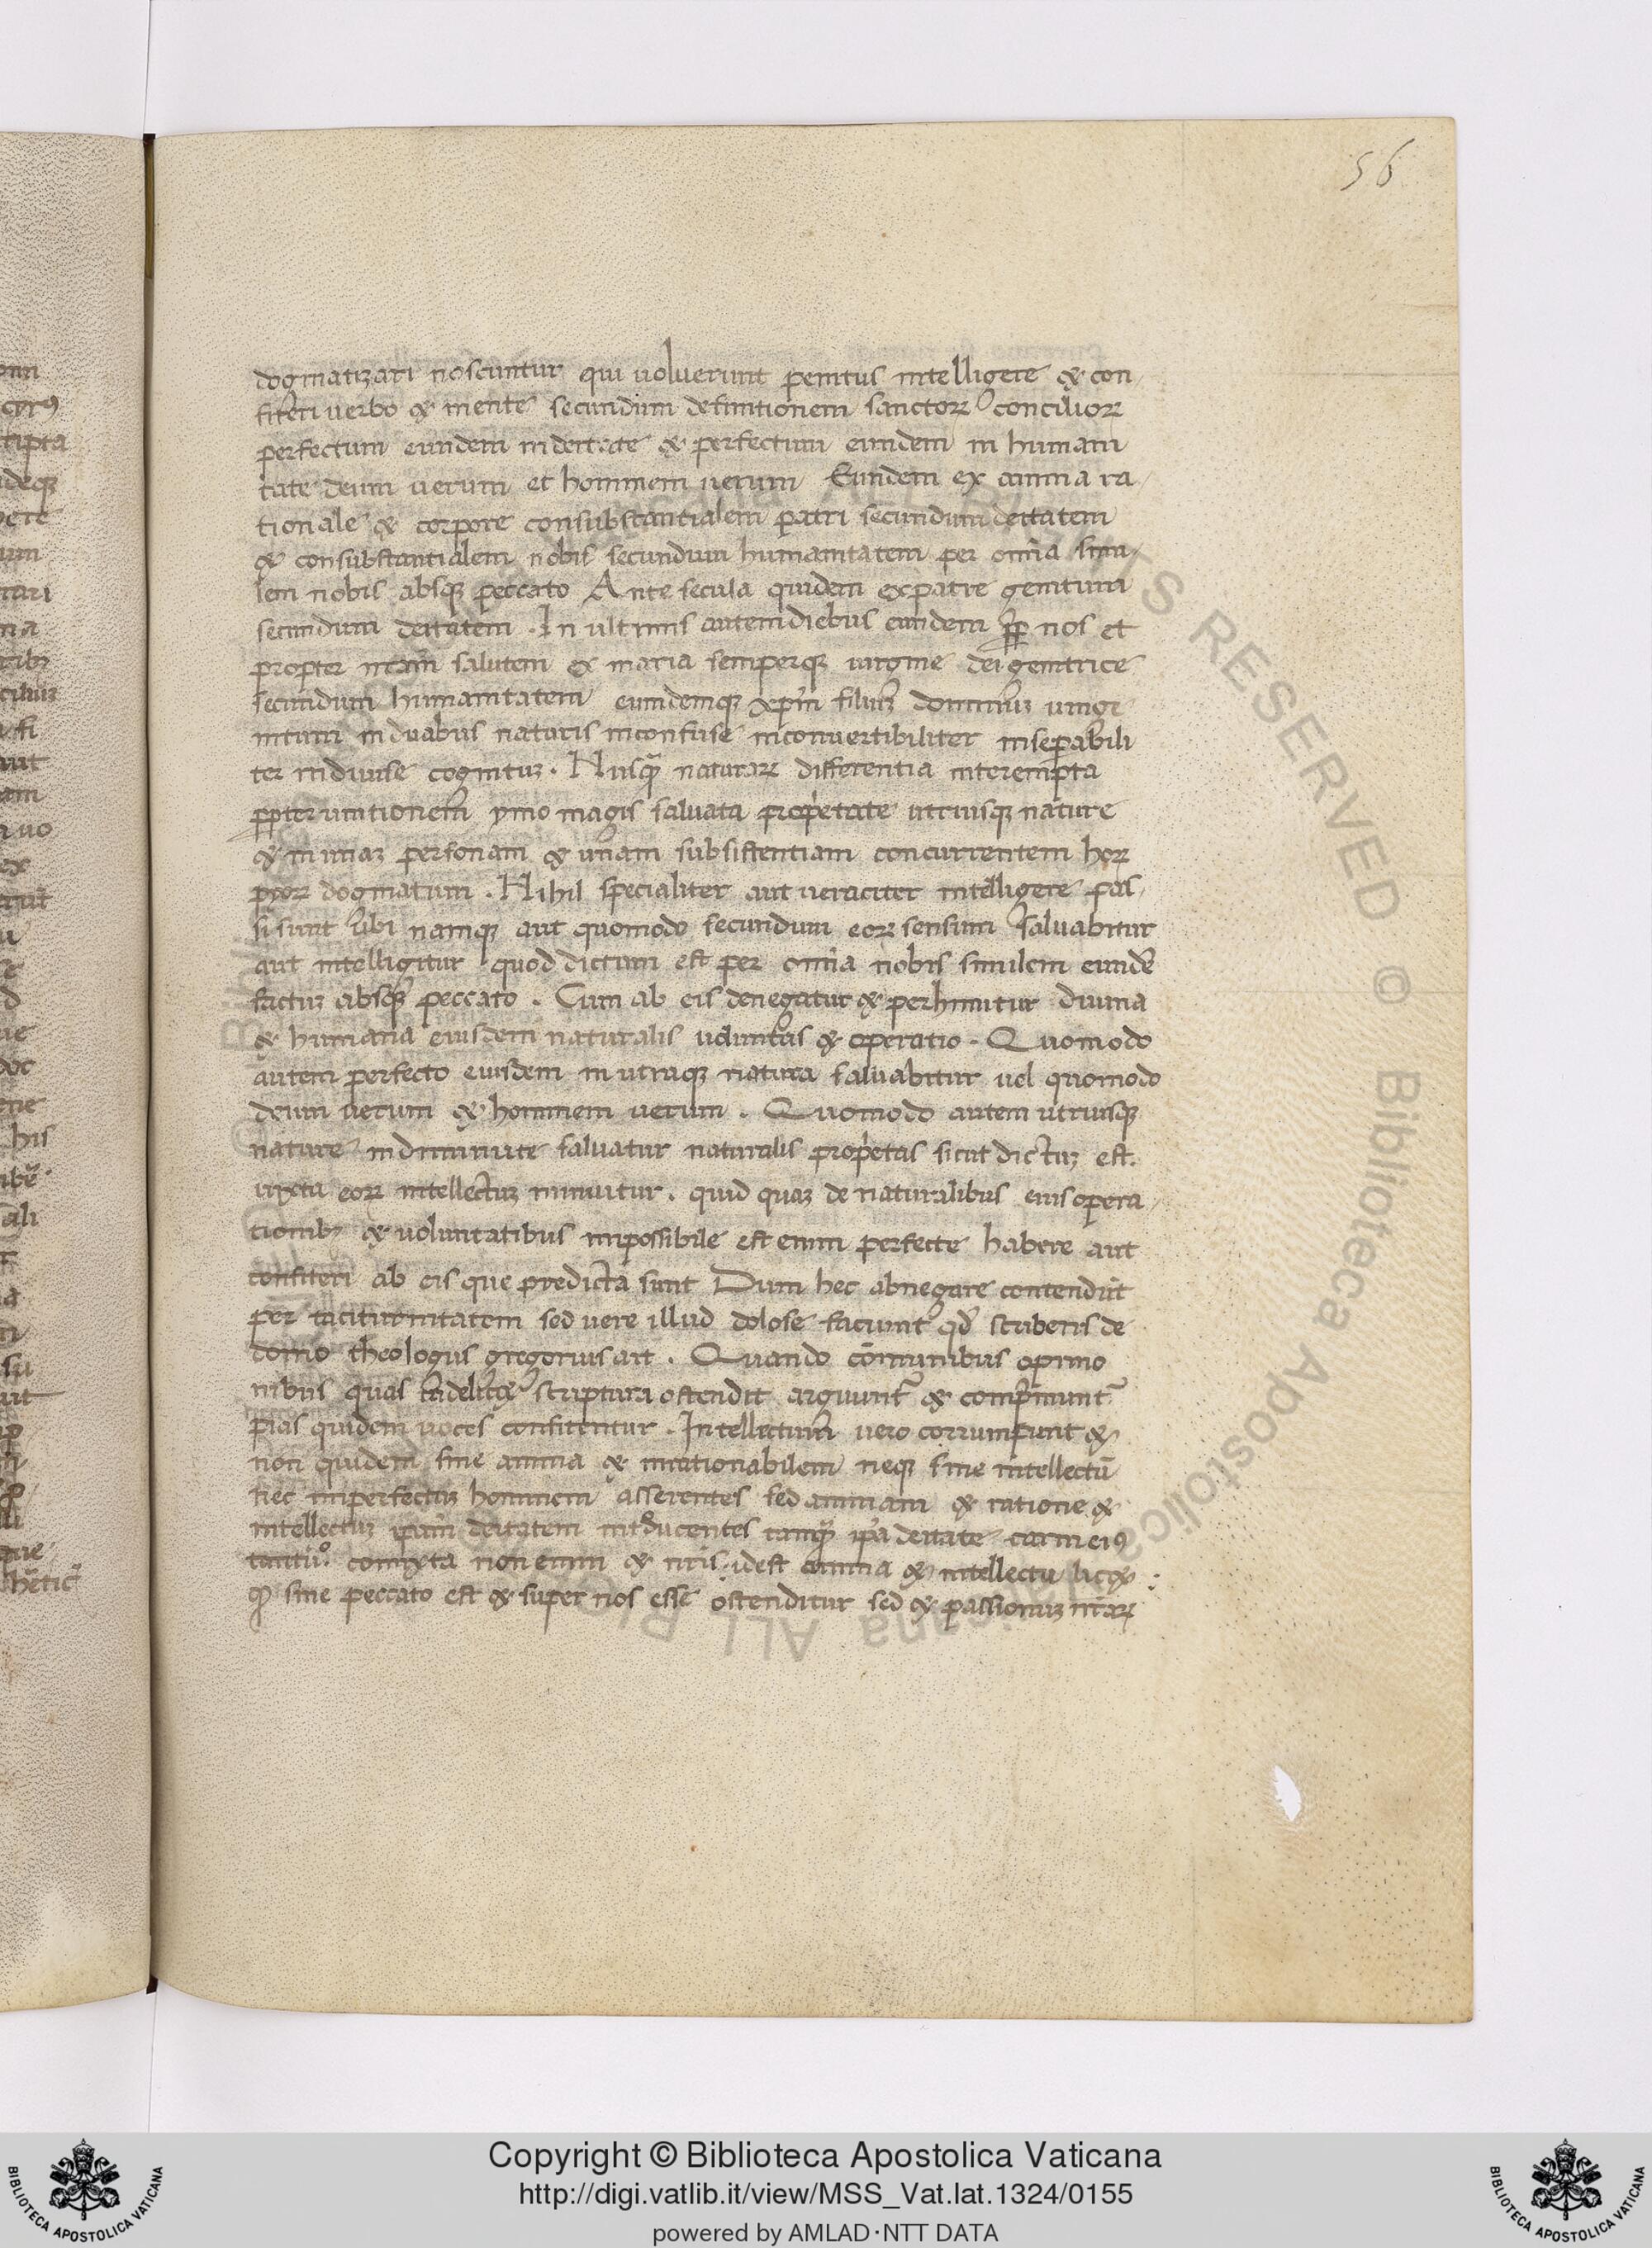 56
dogmatizari noscuntur qui voluerunt penitus intelligere & con
fiteri verbo & mente secundum definitionem sanctorꝝ conciliorꝝ
perfectum eundem in deitate & perfectum eundem in humani
tate deum uerum et hominem uerum Eundem ex anima ra
tionale & corpore consubstantialem patri secundum deitatem
& consubstantialem nobis secundum humanitatem per omīa simi
lem nobis absqꝫ peccato Ante secula quidem ex patre genitum
secundum deitatem . In ultimis autem diebus eundem ꝓpꝑ nos et
propter nr̄am salutem ex maria semperqꝫ uirgine dei genitrice
secundum humanitatem eumdemqꝫ xp̄m filiuꝫ dominuꝫ unige
nitum in duabus naturis inconfuse inconuertibiliter inseparabili
ter indiuise cognituꝫ . Nusqꝫ naturarꝝ differentia interempta
ꝓpter unitionem ymo magis saluata proprietate utriusqꝫ nature
& in unaꝫ personam & unam subsistentiam concurrentem horꝝ
piorꝝ dogmatum . Nihil specialiter aut ueraciter intelligere pas
si sunt ubi namqꝫ aut quomodo secundum eorꝝ sensum saluabitur
aut intelligitur quod dictum est per omīa nobis similem eundē
factuꝫ absqꝫ peccato . Cum ab eis denegatur & perhimitur diuina
& humana eiusdem naturalis uoluntas & operatio . Quomodo
autem perfecto eiusdem in utraqꝫ natura saluabitur uel quomodo
deum uerum & hominem uerum . Quomodo autem utriusqꝫ
nature indiminute saluatur naturalis proprietas sicut dictuꝫ est.
iuxta eorꝝ intellectuꝫ minuitur . quid quaꝫ de naturalibus eius opera
tionibꝫ & voluntatibus impossibile est enim perfecte habere aut
confiteri ab eis que predicta sunt Dum hec abnegare contendūt
per taciturnitatem sed uere illud dolose faciunt qd̄ scribens de
domo theologus gregorius ait . Quando cōmunibus opinio
nibus quas scriptura ostendit arguunt̄ & comprimunt̄
pias quidem uoces confitentur . Intellectum uero corrumpunt &
non quidem sine anima & irrationabilem neqꝫ sine intellectū
nec imperfectuꝫ hominem asserentes sed animam & ratione &
intellectuꝫ ip̄am deitatem introducentes tamqꝫ ip̄a deitate carni eiꝰ
tantū comixta non enim & nr̄is . idest anima & intellectu
sine peccato est & super nos esse ostenditur sed & passionuꝫ nr̄arꝝ
Copyright © Biblioteca Apostolica Vaticana
http://digi.vatlib.it/view/MSS_Vat.lat.1324/0155
powered by AMLAD·NTT DATA